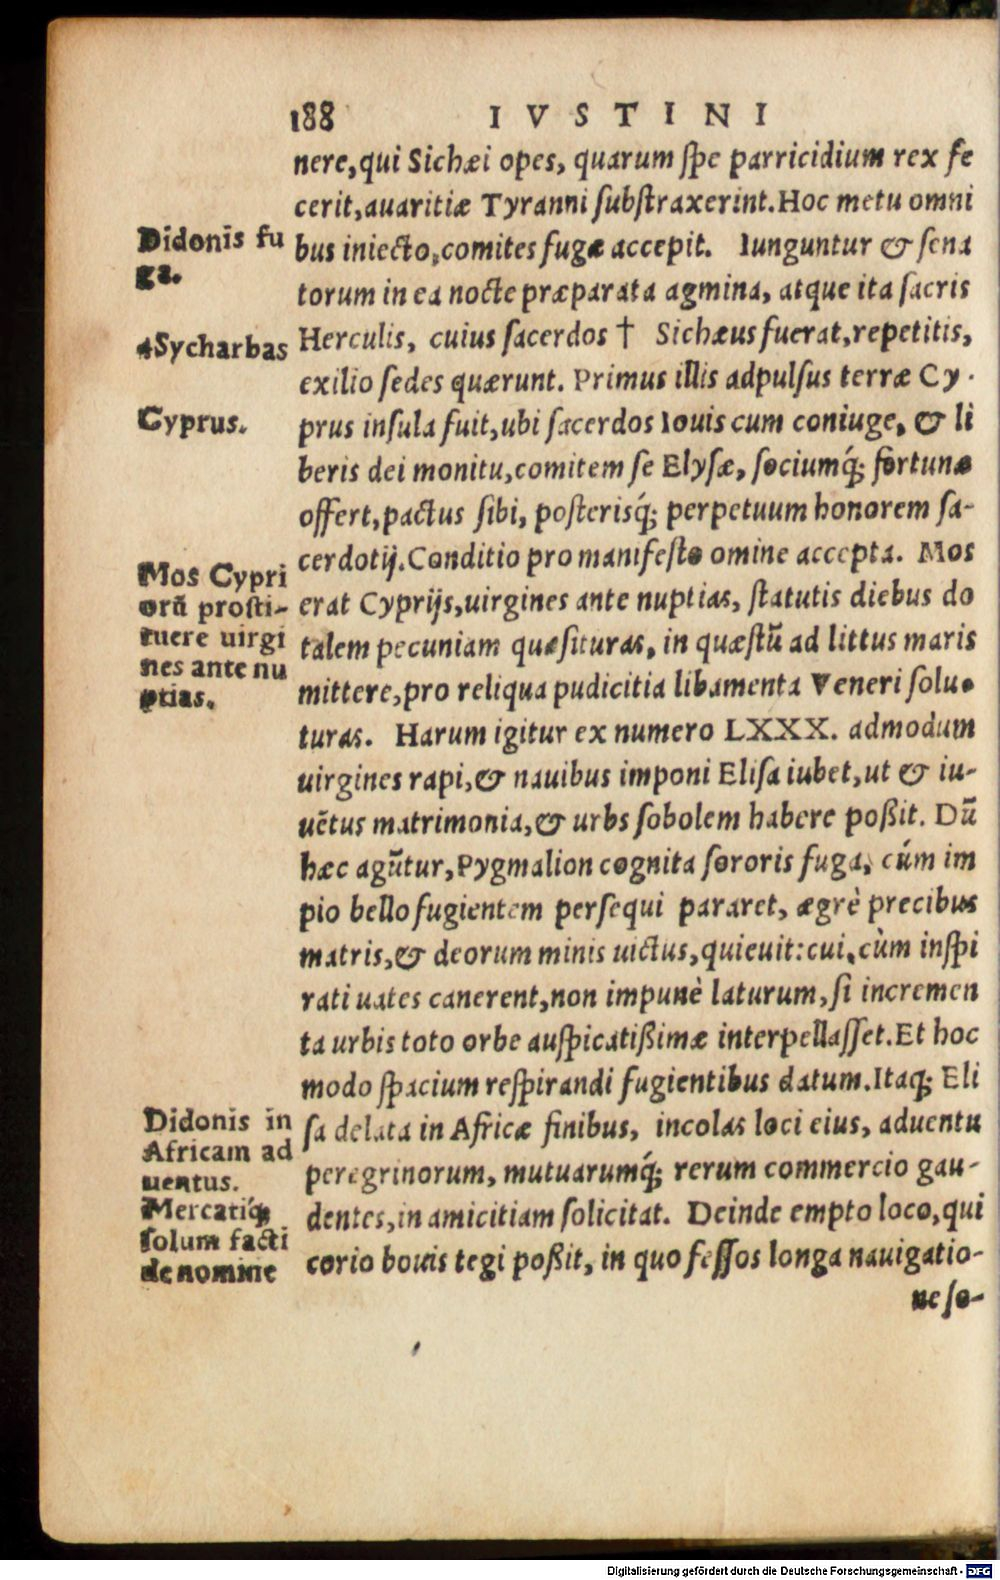 188 IVSTINI
nere, qui Sichæi opes, quarum ſpe parricidium rex fe
cerit, auaritiæ Tyranni ſubſtraxerint. Hoc metu omni
Didonis fu
ga.
bus iniecto, comites fugæ accepit. Iunguntur & ſena
torum in ea nocte præparata agmina, atque ita ſacris
†Sycharbas
Herculis, cuius ſacerdos † Sichæus fuerat, repetitis,
exilio ſedes quærunt. Primus illis adpulſus terræ Cy-
Cyprus.
prus inſula fuit, ubi ſacerdos Iouis cum coniuge, & li
beris dei monitu, comitem ſe Elyſæ, ſociumq́; fortunæ
offert, pactus ſibi, poſterisq́; perpetuum honorem ſa-
cerdotij. Conditio pro manifeſto omine accepta. Mos
Mos Cypri
orū proſti-
tuere uirgi
nes ante nu
ptias.
erat Cyprijs, uirgines ante nuptias, ſtatutis diebus do
talem pecuniam quæſituras, in quæſtū ad littus maris
mittere, pro reliqua pudicitia libamenta Veneri ſolu-
turas. Harum igitur ex numero LXXX. admodum
uirgines rapi, & nauibus imponi Eliſa iubet, ut & iu-
uētus matrimonia, & urbs ſobolem habere poßit. Dū
hæc agūtur, Pygmalion cognita ſororis fuga, cúm im
pio bello fugientem perſequi pararet, ægrè precibus
matris, & deorum minis uictus, quieuit: cui, cùm inſpi
rati uates canerent, non impunè laturum, ſi incremen
ta urbis toto orbe auſpicatißimæ interpellaſſet. Et hoc
modo ſpacium reſpirandi fugientibus datum. Itaq; Eli
Didonis in
Africam ad
uentus.
Mercatiq́;
ſolum facti
de nomine
ſa delata in Africæ finibus, incolas loci eius, aduentu
peregrinorum, mutuarumq́; rerum commercio gau-
dentes, in amicitiam ſolicitat. Deinde empto loco, qui
corio bouis tegi poßit, in quo feſſos longa nauigatio-
ne ſo-
Digitalisierung gefördert durch die Deutsche Forschungsgemeinschaft - DFG